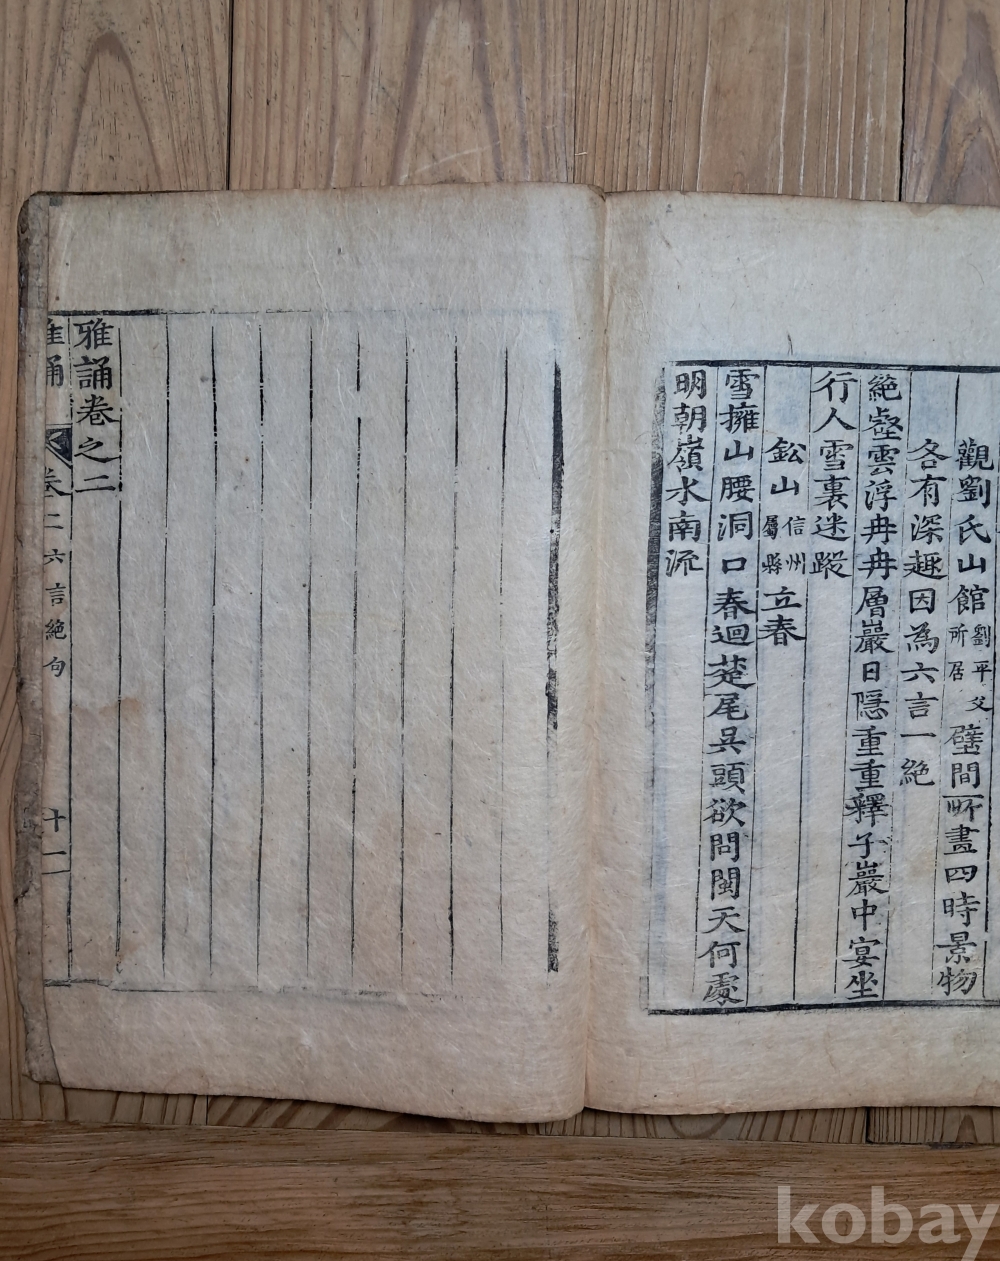 觀劉氏山館劉平父所居壁間所畫四時景物
各有深趣因為六言一絶
絶壑雲浮冉冉層巖日隱重重釋子巖中宴坐
行人雪裏迷蹤
鉛山信州屬縣立春
雪擁山腰洞口春迴楚尾吳頭欲問閩天何處
明朝嶺水南流
雅誦卷之二
雅誦 卷二 六言絶句 十一
kobay